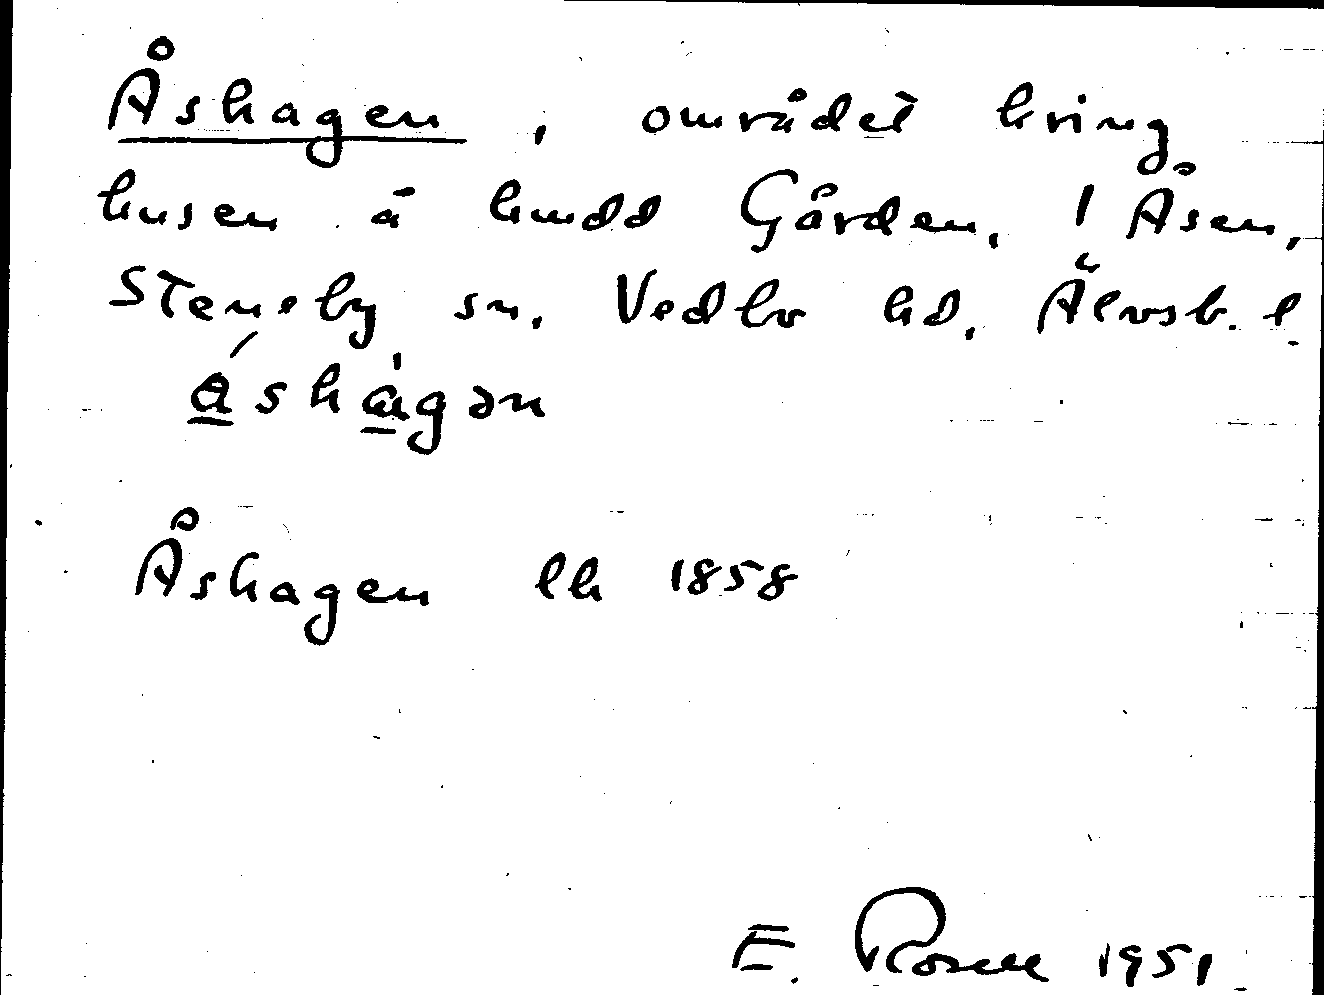 Åshagen, området kring
husen å hmdd Gården, 1 Åsen,
Steneby sn, Vedbo hd, Älvsb. l
åshagən
Åshagen lh 1858
E. Rosell 1951